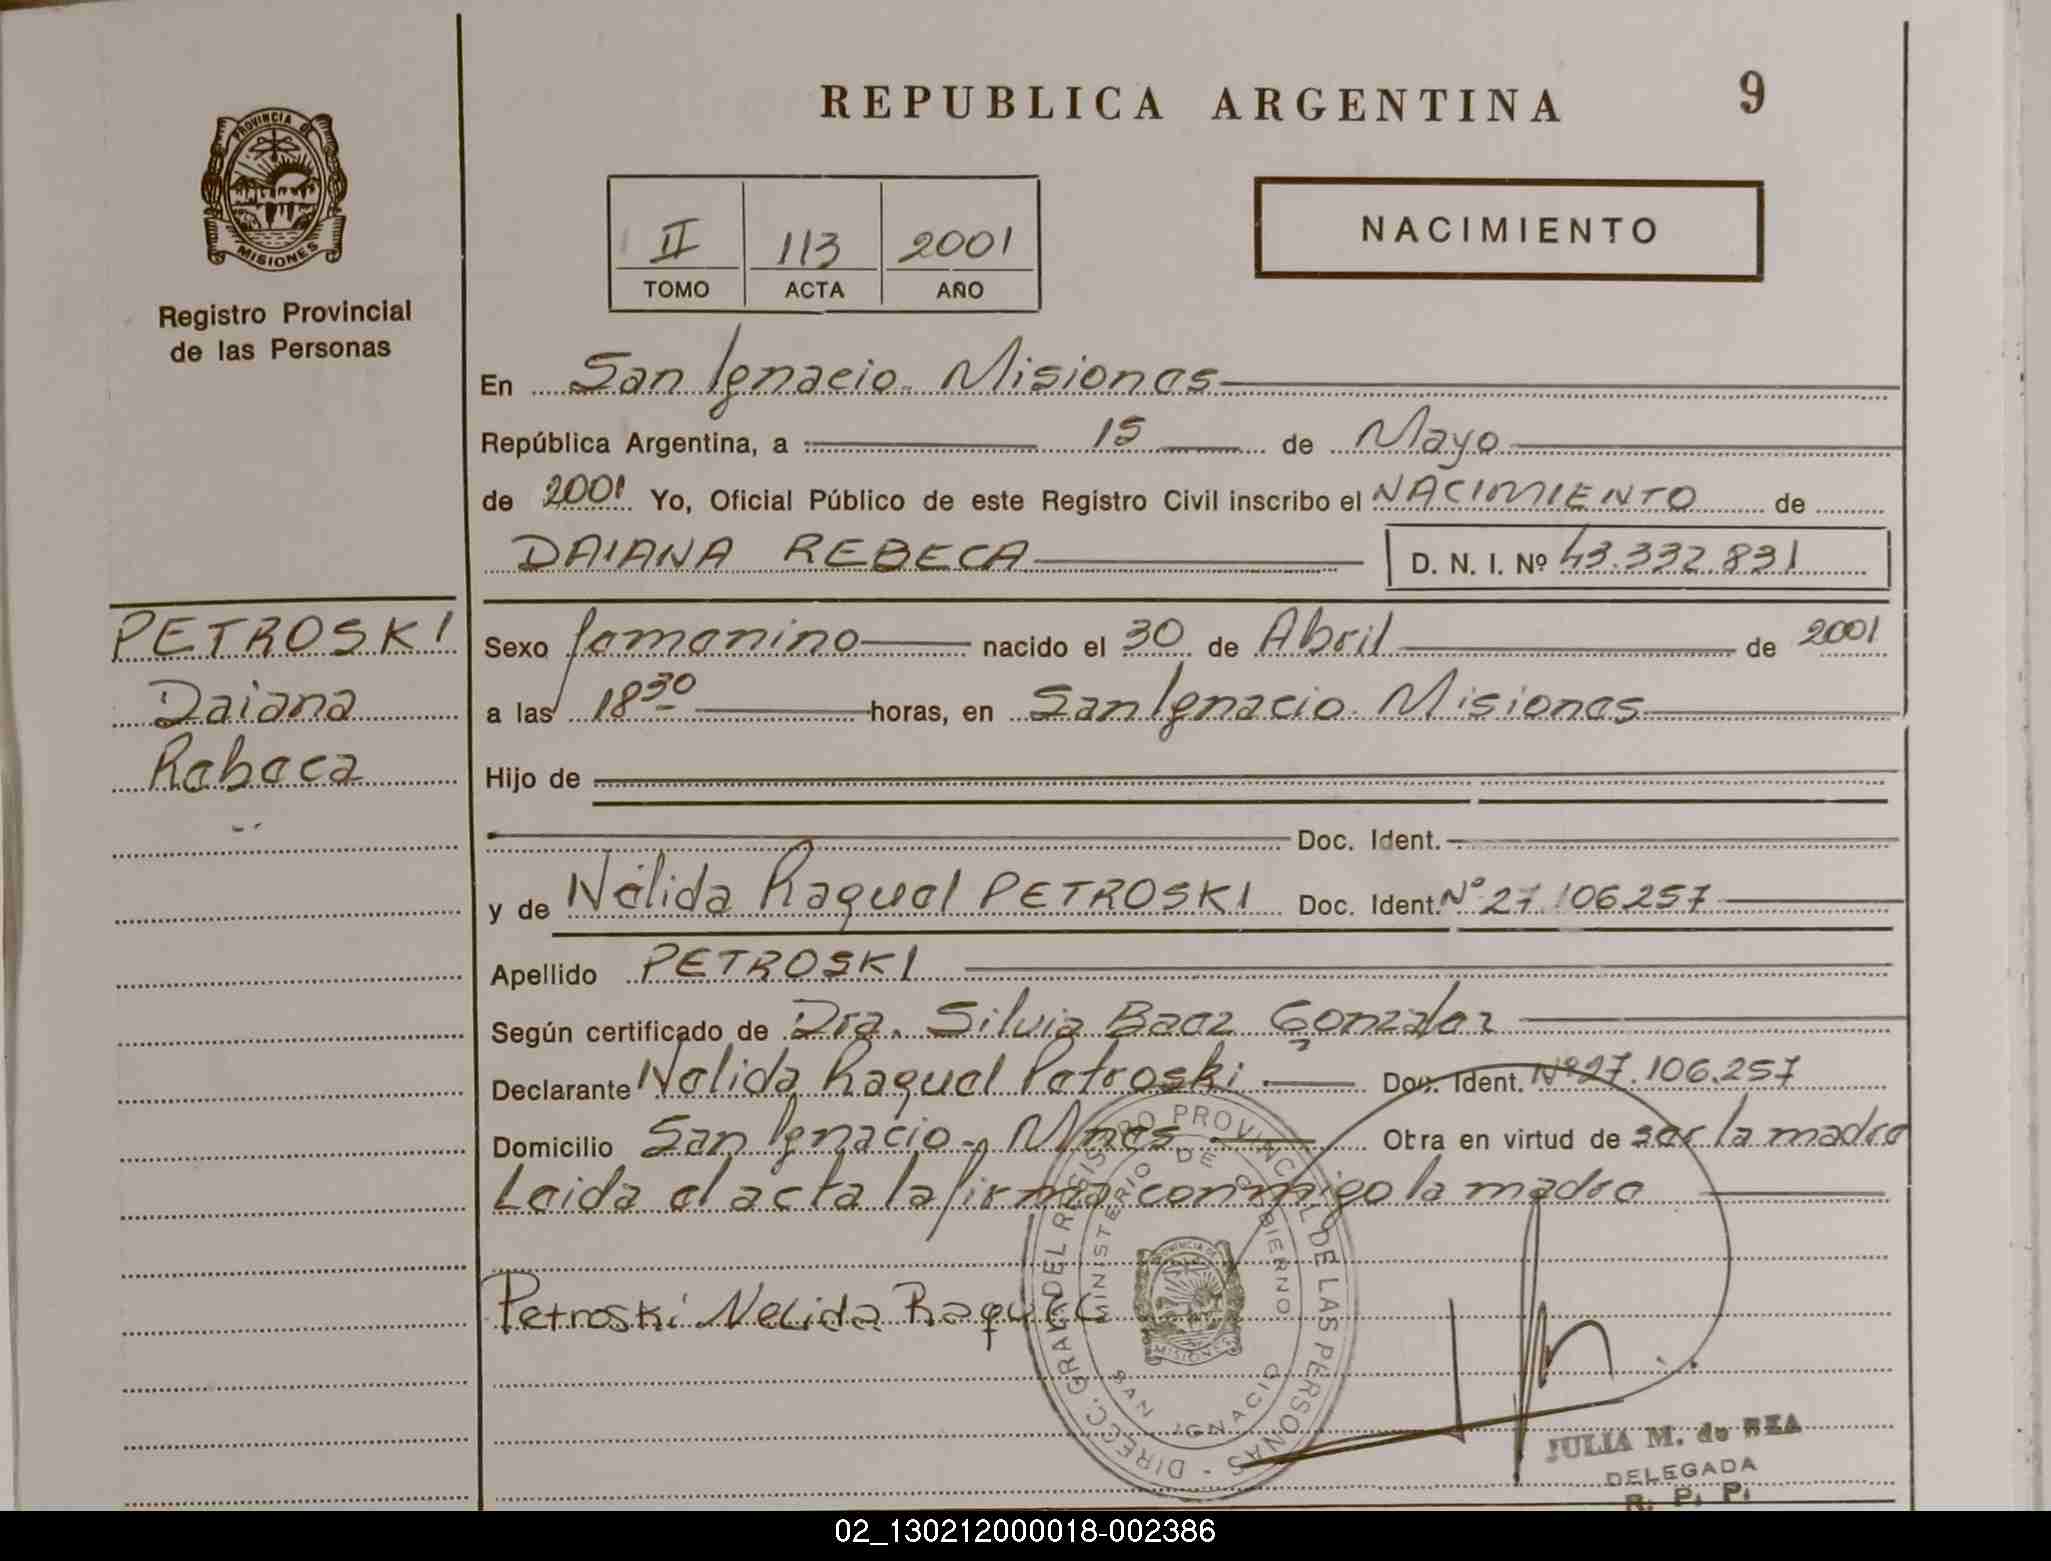 REPUBLICA ARGENTINA
9
PROVINCIA DE
MISIONES
Registro Provincial
de las Personas
II 113 2001
TOMO ACTA AÑO
NACIMIENTO
En San Ignacio Misiones
República Argentina, a 15 de Mayo
de 2001 Yo, Oficial Público de este Registro Civil inscribo el NACIMIENTO de
DAIANA REBECA D. N. I. Nº 43.332.831
PETROSKI
Daiana
Rebeca
Sexo femenino nacido el 30 de Abril de 2001
a las 18 30 horas, en San Ignacio Misiones
Hijo de
Doc. Ident.
y de Nélida Raquel PETROSKI Doc. Ident. Nº 27.106.257
Apellido PETROSKI
Según certificado de Dra. Silvia Baez Gonzalez
Declarante Nelida Raquel Petroski Doc. Ident. Nº 27.106.257
Domicilio San Ignacio - Mnes Obra en virtud de ser la madre
Leida el acta la firma conmigo la madre
Petroski Nelida Raquel
DIRECC. GRAL. DEL REGISTRO PROVINCIAL DE LAS PERSONAS -
MINISTERIO DE GOBIERNO
PROVINCIA DE
MISIONES
SAN IGNACIO
JULIA M. de REA
DELEGADA
R. P. P.
02_130212000018-002386